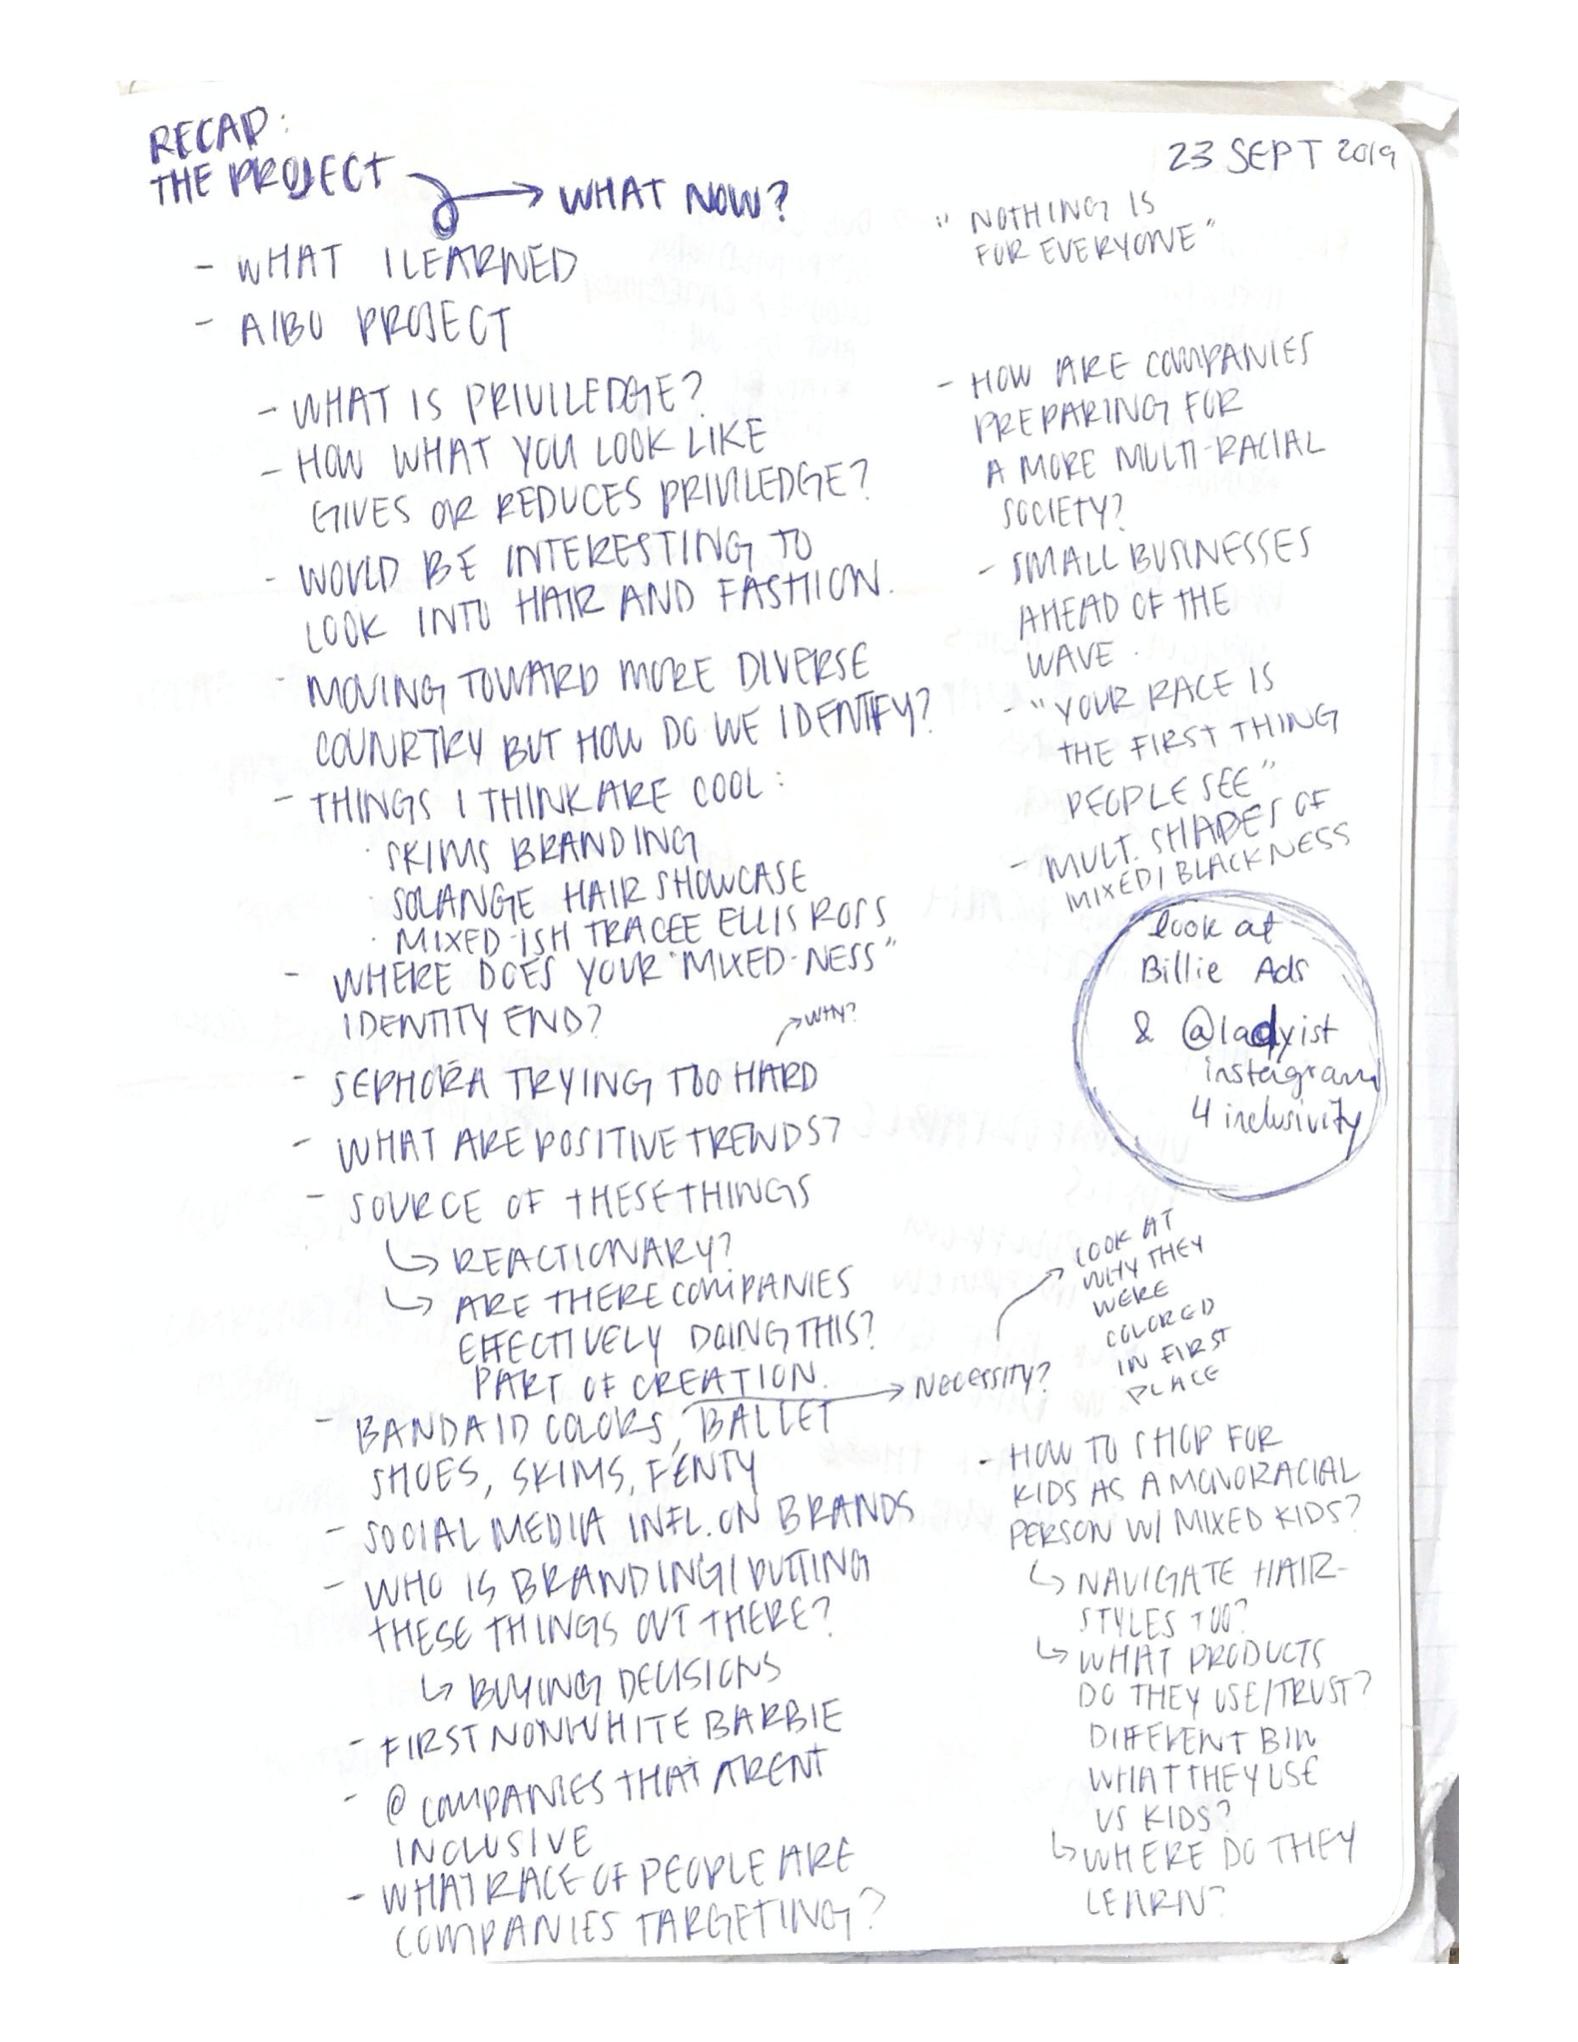 RECAP:
THE PROJECT
WHAT NOW?
- WHAT I LEARNED
- AIBU PROJECT
- WHAT IS PRIVILEDGE?
- HOW WHAT YOU LOOK LIKE
GIVES OR REDUCES PRIVILEDGE?
- WOULD BE INTERESTING TO
LOOK INTO HAIR AND FASHION.
- MOVING TOWARD MORE DIVERSE
COUNRTRY BUT HOW DO WE IDENTIFY?
- THINGS I THINK ARE COOL:
· SKIMS BRANDING
· SOLANGE HAIR SHOWCASE
· MIXED-ISH TRACEE ELLIS ROSS
- WHERE DOES YOUR "MIXED-NESS"
IDENTITY END?
WHY?
- SEPHORA TRYING TOO HARD
- WHAT ARE POSITIVE TRENDS?
- SOURCE OF THESE THINGS
↳ REACTIONARY?
↳ ARE THERE COMPANIES
EFFECTIVELY DOING THIS?
PART OF CREATION.
- BANDAID COLORS, BALLET
SHOES, SKIMS, FENTY
- SOCIAL MEDIA INFL. ON BRANDS
- WHO IS BRANDING/PUTTING
THESE THINGS OUT THERE?
↳ BUYING DECISIONS
- FIRST NONWHITE BARBIE
- @ COMPANIES THAT ARENT
INCLUSIVE
- WHAT RACE OF PEOPLE ARE
COMPANIES TARGETING?
23 SEPT 2019
"NOTHING IS
FOR EVERYONE"
- HOW ARE COMPANIES
PREPARING FOR
A MORE MULTI-RACIAL
SOCIETY?
- SMALL BUSINESSES
AHEAD OF THE
WAVE.
- "YOUR RACE IS
THE FIRST THING
PEOPLE SEE"
- MULT. SHADES OF
MIXED/BLACKNESS
look at
Billie Ads
& @ladyist
instagram
4 inclusivity
LOOK AT
WHY THEY
WERE
COLORED
IN FIRST
PLACE
NECESSITY?
- HOW TO SHOP FOR
KIDS AS A MONORACIAL
PERSON W/ MIXED KIDS?
↳ NAVIGATE HAIR-
STYLES TOO?
↳ WHAT PRODUCTS
DO THEY USE/TRUST?
DIFFERENT B/W
WHAT THEY USE
VS KIDS?
↳ WHERE DO THEY
LEARN?